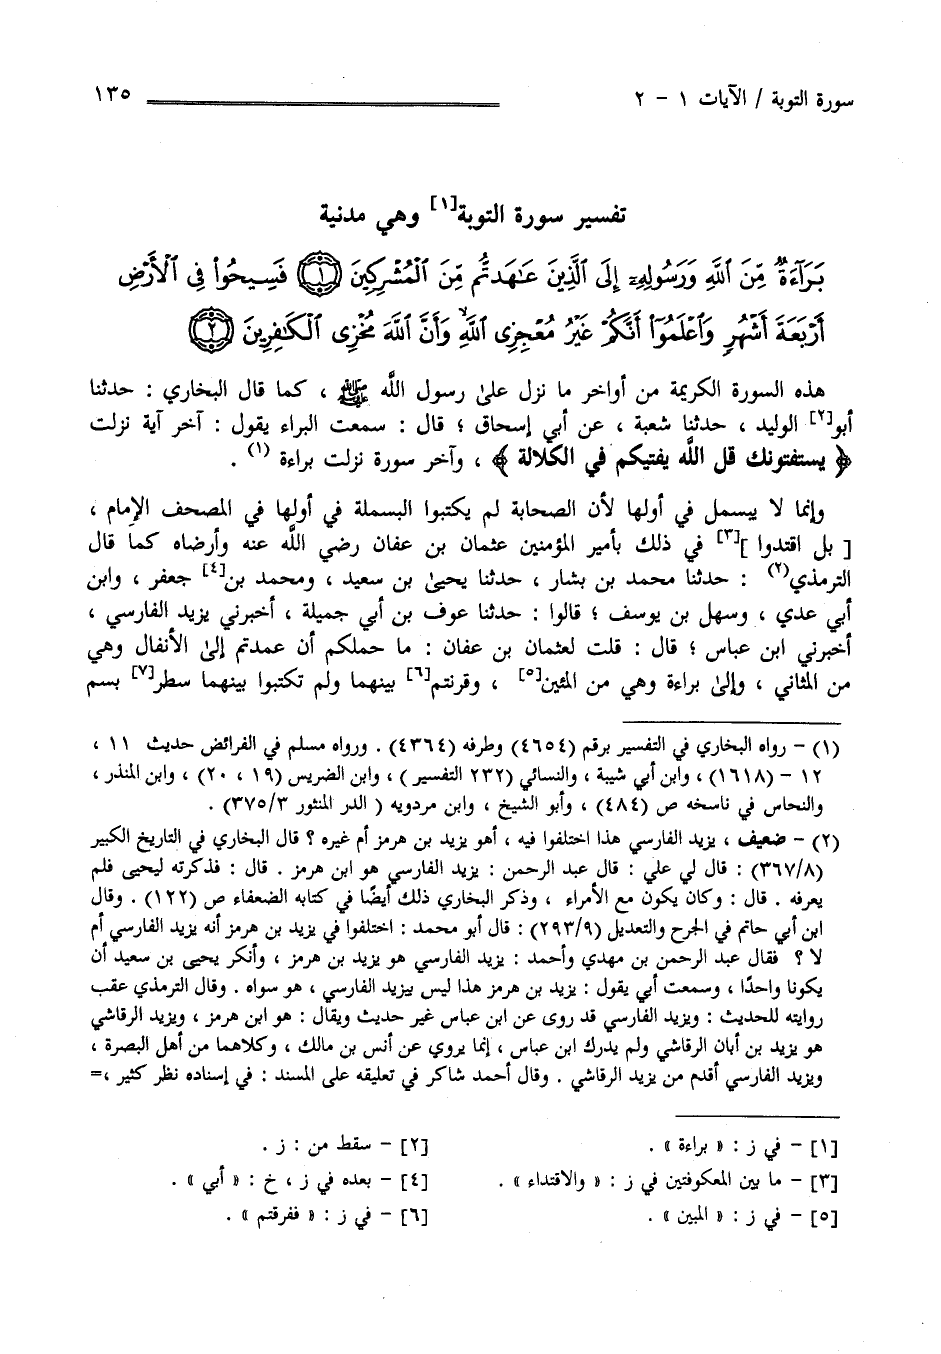 سورة التوبة / الآيات ١ - ٢ ١٣٥
تفسير سورة التوبة[١] وهي مدنية
بَرَآءَةٌ مِّنَ ٱللَّهِ وَرَسُولِهِۦٓ إِلَى ٱلَّذِينَ عَٰهَدتُّم مِّنَ ٱلْمُشْرِكِينَ ﴿١﴾ فَسِيحُوا۟ فِى ٱلْأَرْضِ
أَرْبَعَةَ أَشْهُرٍ وَٱعْلَمُوٓا۟ أَنَّكُمْ غَيْرُ مُعْجِزِى ٱللَّهِ ۙ وَأَنَّ ٱللَّهَ مُخْزِى ٱلْكَٰفِرِينَ ﴿٢﴾
هذه السورة الكريمة من أواخر ما نزل علىٰ رسول اللَّه ﷺ ، كما قال البخاري : حدثنا
أبو[٢] الوليد ، حدثنا شعبة ، عن أبي إسحاق ؛ قال : سمعت البراء يقول : آخر آية نزلت
﴿ يستفتونك قل اللَّه يفتيكم في الكلالة ﴾ ، وآخر سورة نزلت براءة (١) .
وإنما لا يبسمل في أولها لأن الصحابة لم يكتبوا البسملة في أولها في المصحف الإمام ،
[ بل اقتدوا ][٣] في ذلك بأمير المؤمنين عثمان بن عفان رضي اللَّه عنه وأرضاه كما قال
الترمذي(٢) : حدثنا محمد بن بشار ، حدثنا يحيىٰ بن سعيد ، ومحمد بن[٤] جعفر ، وابن
أبي عدي ، وسهل بن يوسف ؛ قالوا : حدثنا عوف بن أبي جميلة ، أخبرني يزيد الفارسي ،
أخبرني ابن عباس ؛ قال : قلت لعثمان بن عفان : ما حملكم أن عمدتم إلىٰ الأنفال وهي
من المثاني ، وإلىٰ براءة وهي من المئين[٥] ، وقرنتم[٦] بينهما ولم تكتبوا بينهما سطر[٧] بسم
(١) - رواه البخاري في التفسير برقم (٤٦٥٤) وطرفه (٤٣٦٤) . ورواه مسلم في الفرائض حديث ١١ ،
١٢ - (١٦١٨) ، وابن أبي شيبة ، والنسائي (٢٣٢ التفسير) ، وابن الضريس (١٩ ، ٢٠) ، وابن المنذر ،
والنحاس في ناسخه ص (٤٨٤) ، وأبو الشيخ ، وابن مردويه ( الدر المنثور ٣٧٥/٣) .
(٢) - ضعيف ، يزيد الفارسي هذا اختلفوا فيه ، أهو يزيد بن هرمز أم غيره ؟ قال البخاري في التاريخ الكبير
(٣٦٧/٨) : قال لي علي : قال عبد الرحمن : يزيد الفارسي هو ابن هرمز . قال : فذكرته ليحيى فلم
يعرفه . قال : وكان يكون مع الأمراء ، وذكر البخاري ذلك أيضًا في كتابه الضعفاء ص (١٢٢) . وقال
ابن أبي حاتم في الجرح والتعديل (٢٩٣/٩) : قال أبو محمد : اختلفوا في يزيد بن هرمز أنه يزيد الفارسي أم
لا ؟ فقال عبد الرحمن بن مهدي وأحمد : يزيد الفارسي هو يزيد بن هرمز ، وأنكر يحيى بن سعيد أن
يكونا واحدًا ، وسمعت أبي يقول : يزيد بن هرمز هذا ليس بيزيد الفارسي ، هو سواه . وقال الترمذي عقب
روايته للحديث : ويزيد الفارسي قد روى عن ابن عباس غير حديث ويقال : هو ابن هرمز ، ويزيد الرقاشي
هو يزيد بن أبان الرقاشي ولم يدرك ابن عباس ، إنما يروي عن أنس بن مالك ، وكلاهما من أهل البصرة ،
ويزيد الفارسي أقدم من يزيد الرقاشي . وقال أحمد شاكر في تعليقه على المسند : في إسناده نظر كثير ،=
[١] - في ز : « براءة » . [٢] - سقط من : ز .
[٣] - ما بين المعكوفتين في ز : « والاقتداء » . [٤] - بعده في ز ، خ : « أبي » .
[٥] - في ز : « المبين » . [٦] - في ز : « ففرقتم » .